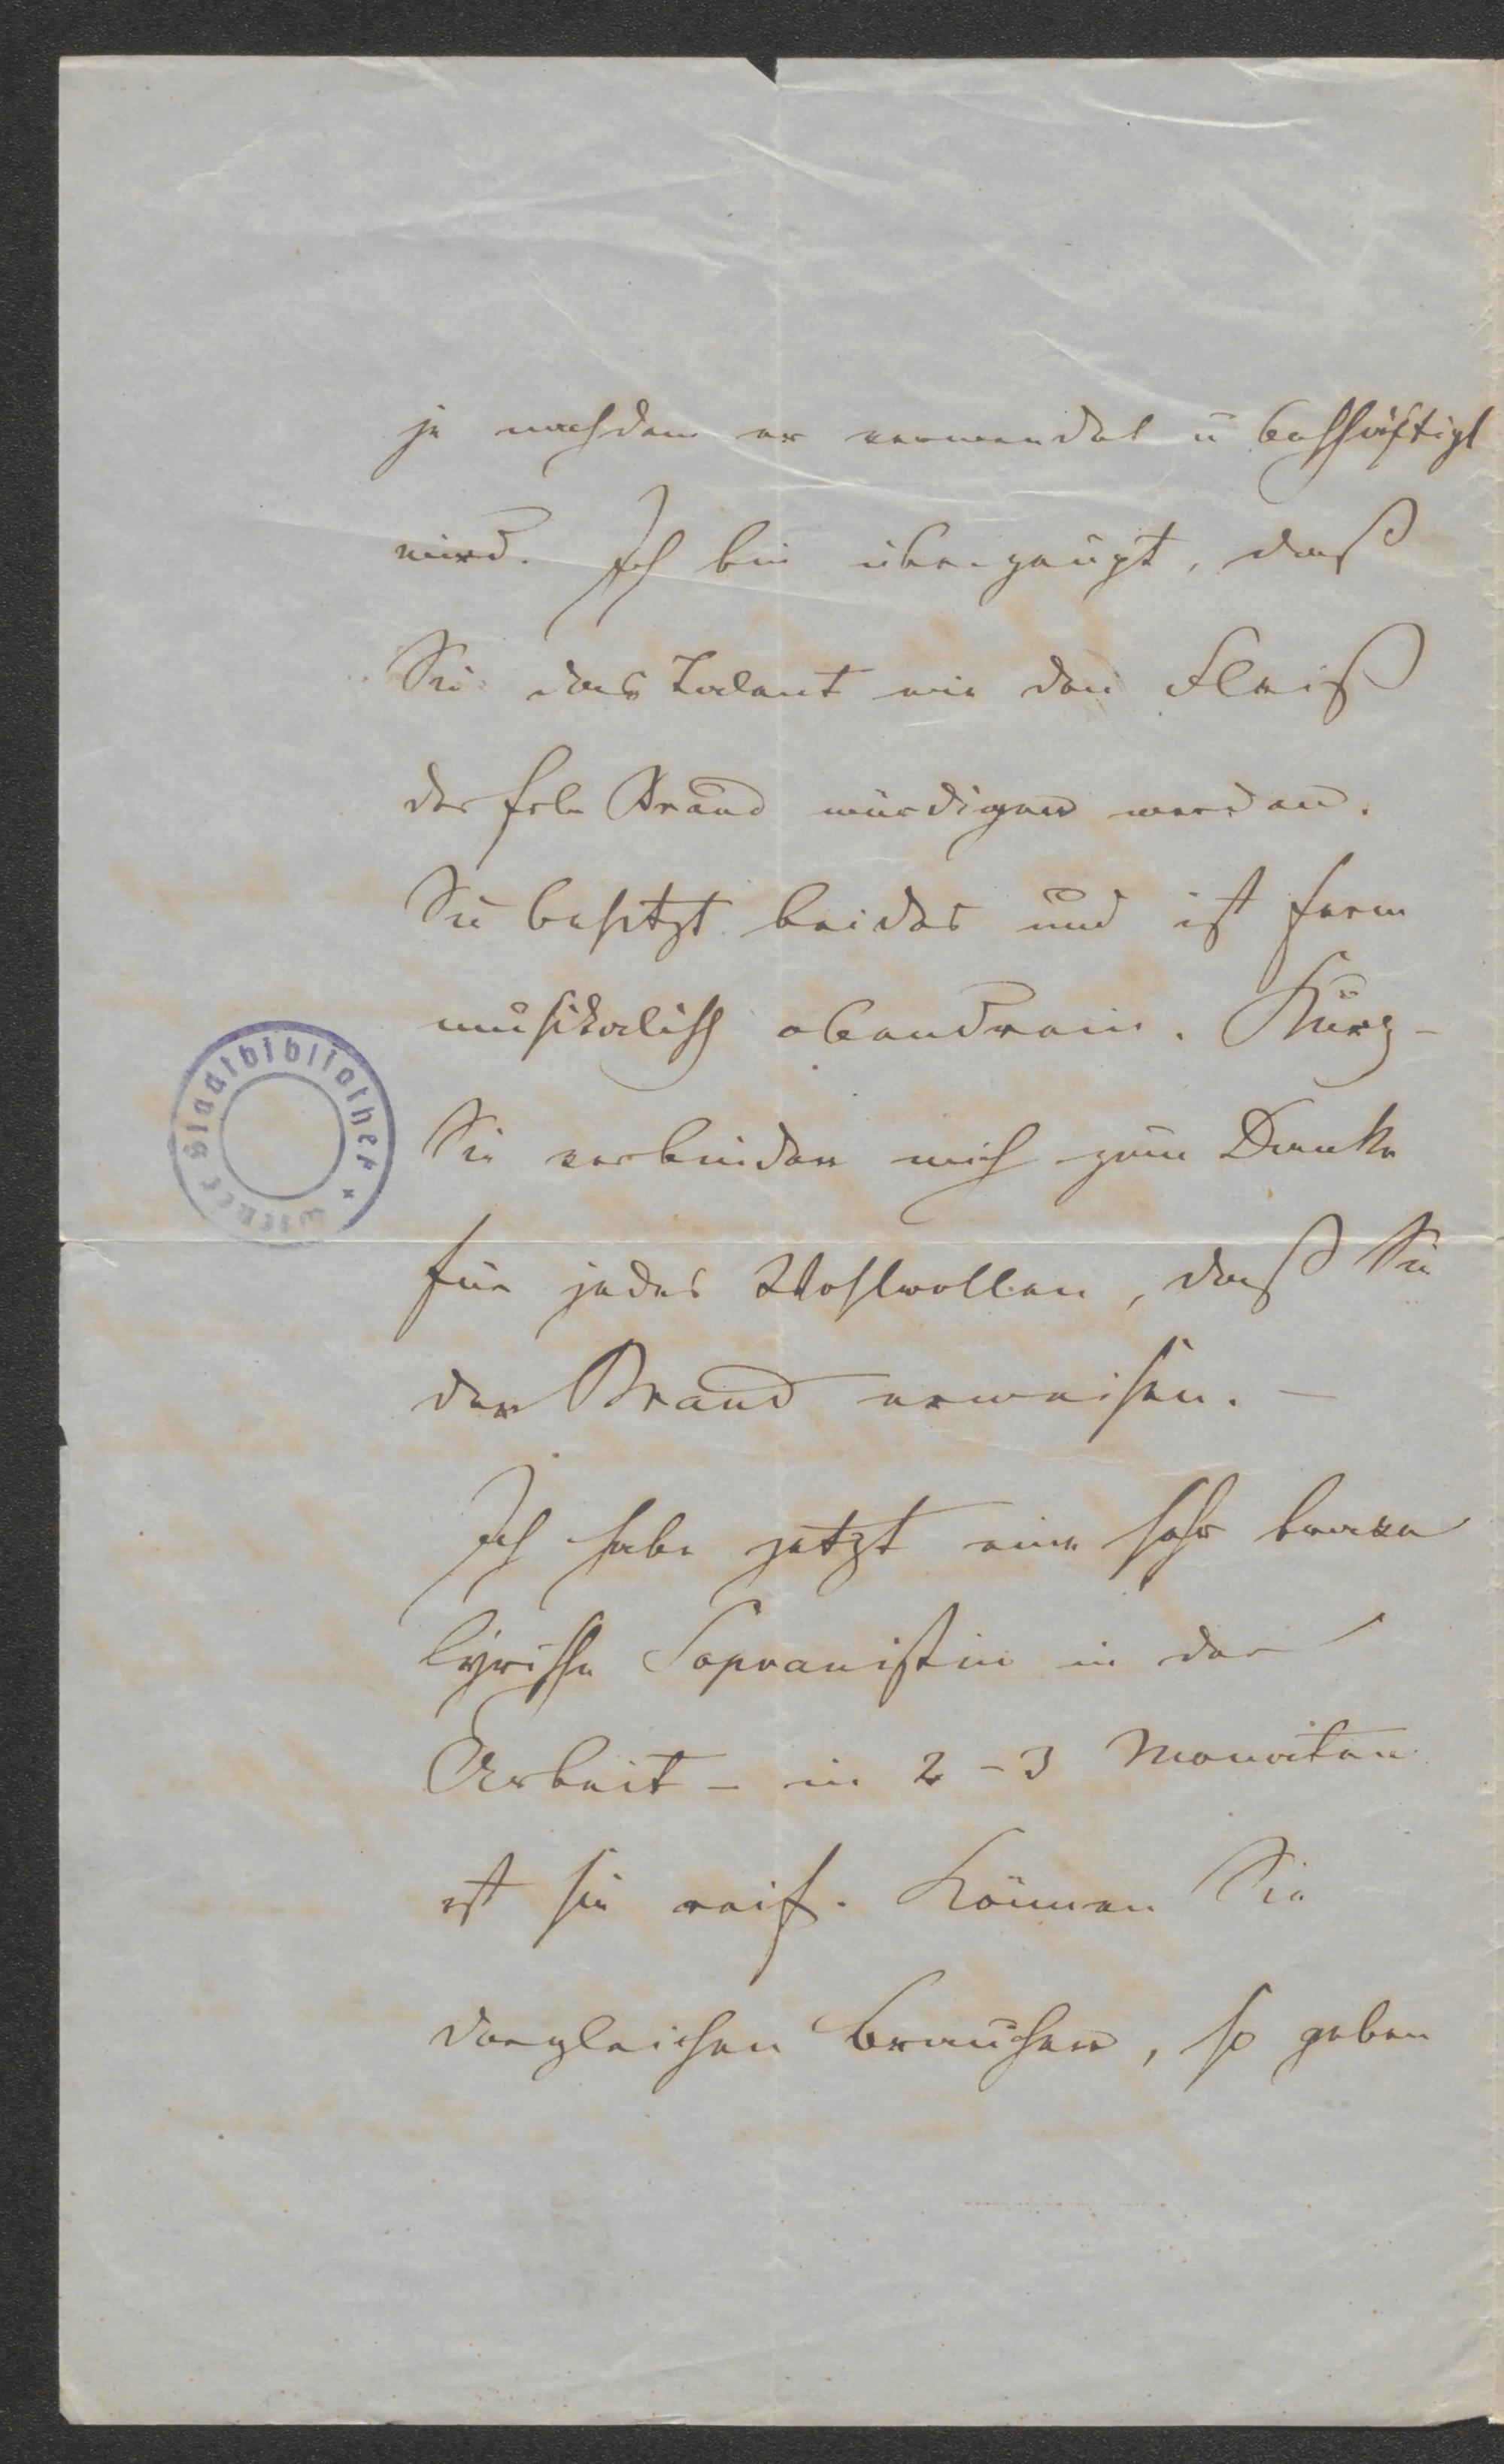 je nachdem er verwendet u beschäftigt
wird. Ich bin überzeugt, daß
Sie das Talent wie den Fleiß
der Frln Brand würdigen werden.
Sie besitzt beides und ist ferm
musikalisch obendrein. Kurz –
Sie verbinden mich zum Danke
für jedes Wohlwollen, daß Sie
der Brand erweisen. –
Ich habe jetzt eine sehr brave
lyrische Sopranistin in der
Arbeit – in 2 – 3 Monaten
ist sie reif. Können Sie
dergleichen brauchen, so geben
Wiener Stadtbibliothek *